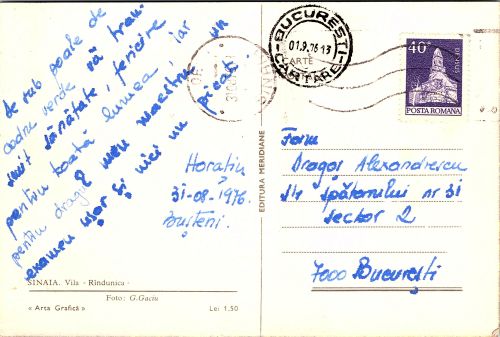 de sub poale de
codru verde vă tran-
smit sănătate, fericire
pentru toată lumea, iar
pentru dragul meu maestru un
examen ușor și nici un pricat.
Horatiu
31-08-1976
Bușteni.
SINAIA. Vila «Rîndunica»
Foto: G. Gaciu
«Arta Grafică»
Lei 1,50
EDITURA MERIDIANE
BUCUREȘTI
01.9.76.13
CARTARE
40
POSTA ROMANA
Dragoș Alexandrescu
Str Spătarului nr 31
sector 2
7000 București